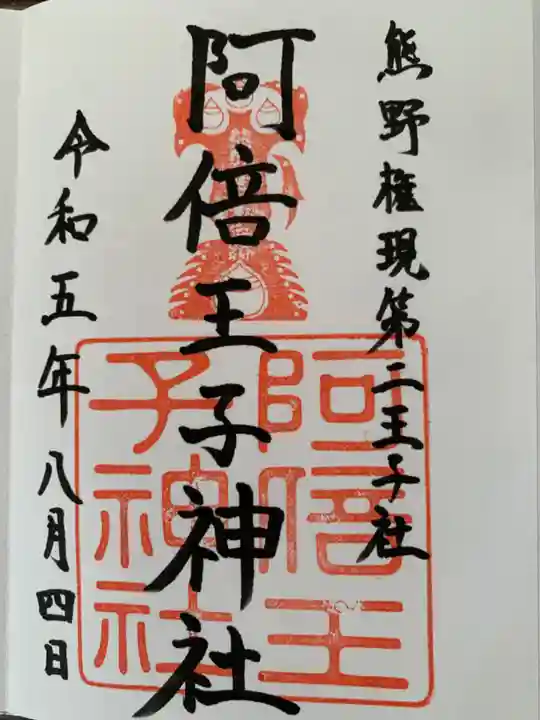 熊野権現第二王子社
阿倍王子神社
令和五年八月四日
阿倍王
子神社